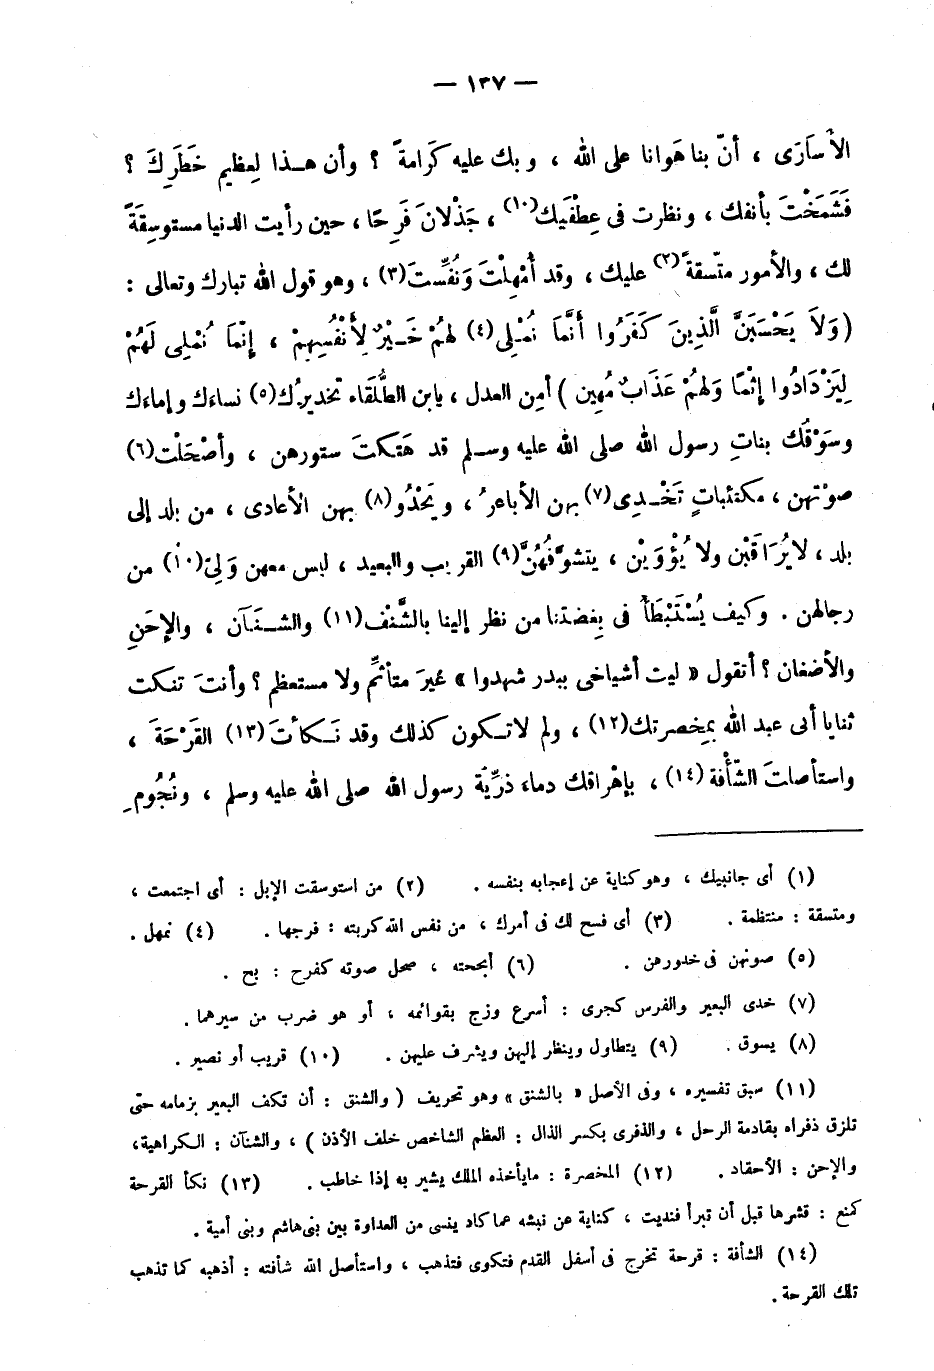 — ١٣٧ —
الأسَارَى ، أنّ بنا هَوانا على الله ، وبك عليه كَرامةً ؟ وأن هــذا لِعظيم خَطَرِكَ ؟
فَشَمَخْتَ بأنفك ، ونظرت فى عِطْفَيك(١٠) ، جَذْلانَ فَرِحًا ، حين رأيت الدنيا مستوسِقَةً
لك ، والأمور متّسقةً(٢) عليك ، وقد أُمْهِلْتَ وَنُفِّسْتَ(٣) ، وهو قول الله تبارك وتعالى :
( وَلَا يَحْسَبَنَّ الَّذِينَ كَفَرُوا أَنَّمَا نُمْـلِى(٤) لهُمْ خَـيْرٌ لِأَنْفُسِهِمْ ، إنَّمَا نُمْلِى لَهُمْ
لِيَزْدَادُوا إثْمًا وَلهُمْ عَذَابٌ مُهِين ) أمِن العدل ، يابن الطُّلَقَاء تخديرُك(٥) نساءَك وإماءك
وسَوْقُك بناتِ رسول الله صلى الله عليه وسـلم قد هَتكتَ ستورهن ، وأصْحَلْت(٦)
صوْتهن ، مكتئباتٍ تَخْـدِى(٧) بهن الأباعرُ ، ويَحْدُو(٨) بهن الأعادى ، من بلد إلى
بلد ، لا يُرَاقَبْن ولا يُؤْوَيْن ، يتشوَّفُهُنَّ(٩) القريب والبعيد ، ليس معهن وَلِىّ(١٠) من
رجالهن . وكيف يُسْتَبْطَأُ فى بِغضتنا من نظر إلينا بالشَّنْف(١١) والشــنَآن ، والإحَنِ
والأضغان ؟ أتقول « ليت أشياخى ببدر شهدوا » غيرَ متأثِّم ولا مستعظم ؟ وأنتَ تنكت
ثنايا أبى عبد الله بمِخصرتك(١٢) ، ولم لا تـكون كذلك وقد نَـكأْتَ (١٣) القَرْحَةَ ،
واستأصلتَ الشَّأْفة (١٤) ، بإهْراقك دماءَ ذرِّيَّة رسول الله صلى الله عليه وسلم ، ونُجُومِ
(١) أى جانبيك ، وهو كناية عن إعجابه بنفسه . (٢) من استوسقت الإبل : أى اجتمعت ،
ومتسقة : منتظمة . (٣) أى فسح لك فى أمرك ، من نفس الله كربته : فرجها . (٤) نمهل .
(٥) صونهن فى خدورهن . (٦) أبححته ، صحل صوته كفرح : بح .
(٧) خدى البعير والفرس كجرى : أسرع وزج بقوائمه ، أو هو ضرب من سيرهما .
(٨) يسوق . (٩) يتطاول وينظر إليهن ويشرف عليهن . (١٠) قريب أو نصير .
(١١) سبق تفسيره ، وفى الأصل « بالشنق » وهو تحريف ( والشنق : أن تكف البعير بزمامه حتى
تلزق ذفراه بقادمة الرحل ، والذفرى بكسر الذال : العظم الشاخص خلف الأذن ) ، والشنآن : الكراهية،
والإحن : الأحقاد . (١٢) المخصرة : مايأخذه الملك يشير به إذا خاطب . (١٣) نكأ القرحة
كمنع : قشرها قبل أن تبرأ فنديت ، كناية عن نبشه عما كاد ينسى من العداوة بين بنى هاشم وبنى أمية .
(١٤) الشأفة : قرحة تخرج فى أسفل القدم فتكوى فتذهب ، واستأصل الله شأفته : أذهبه كما تذهب
تلك القرحة .